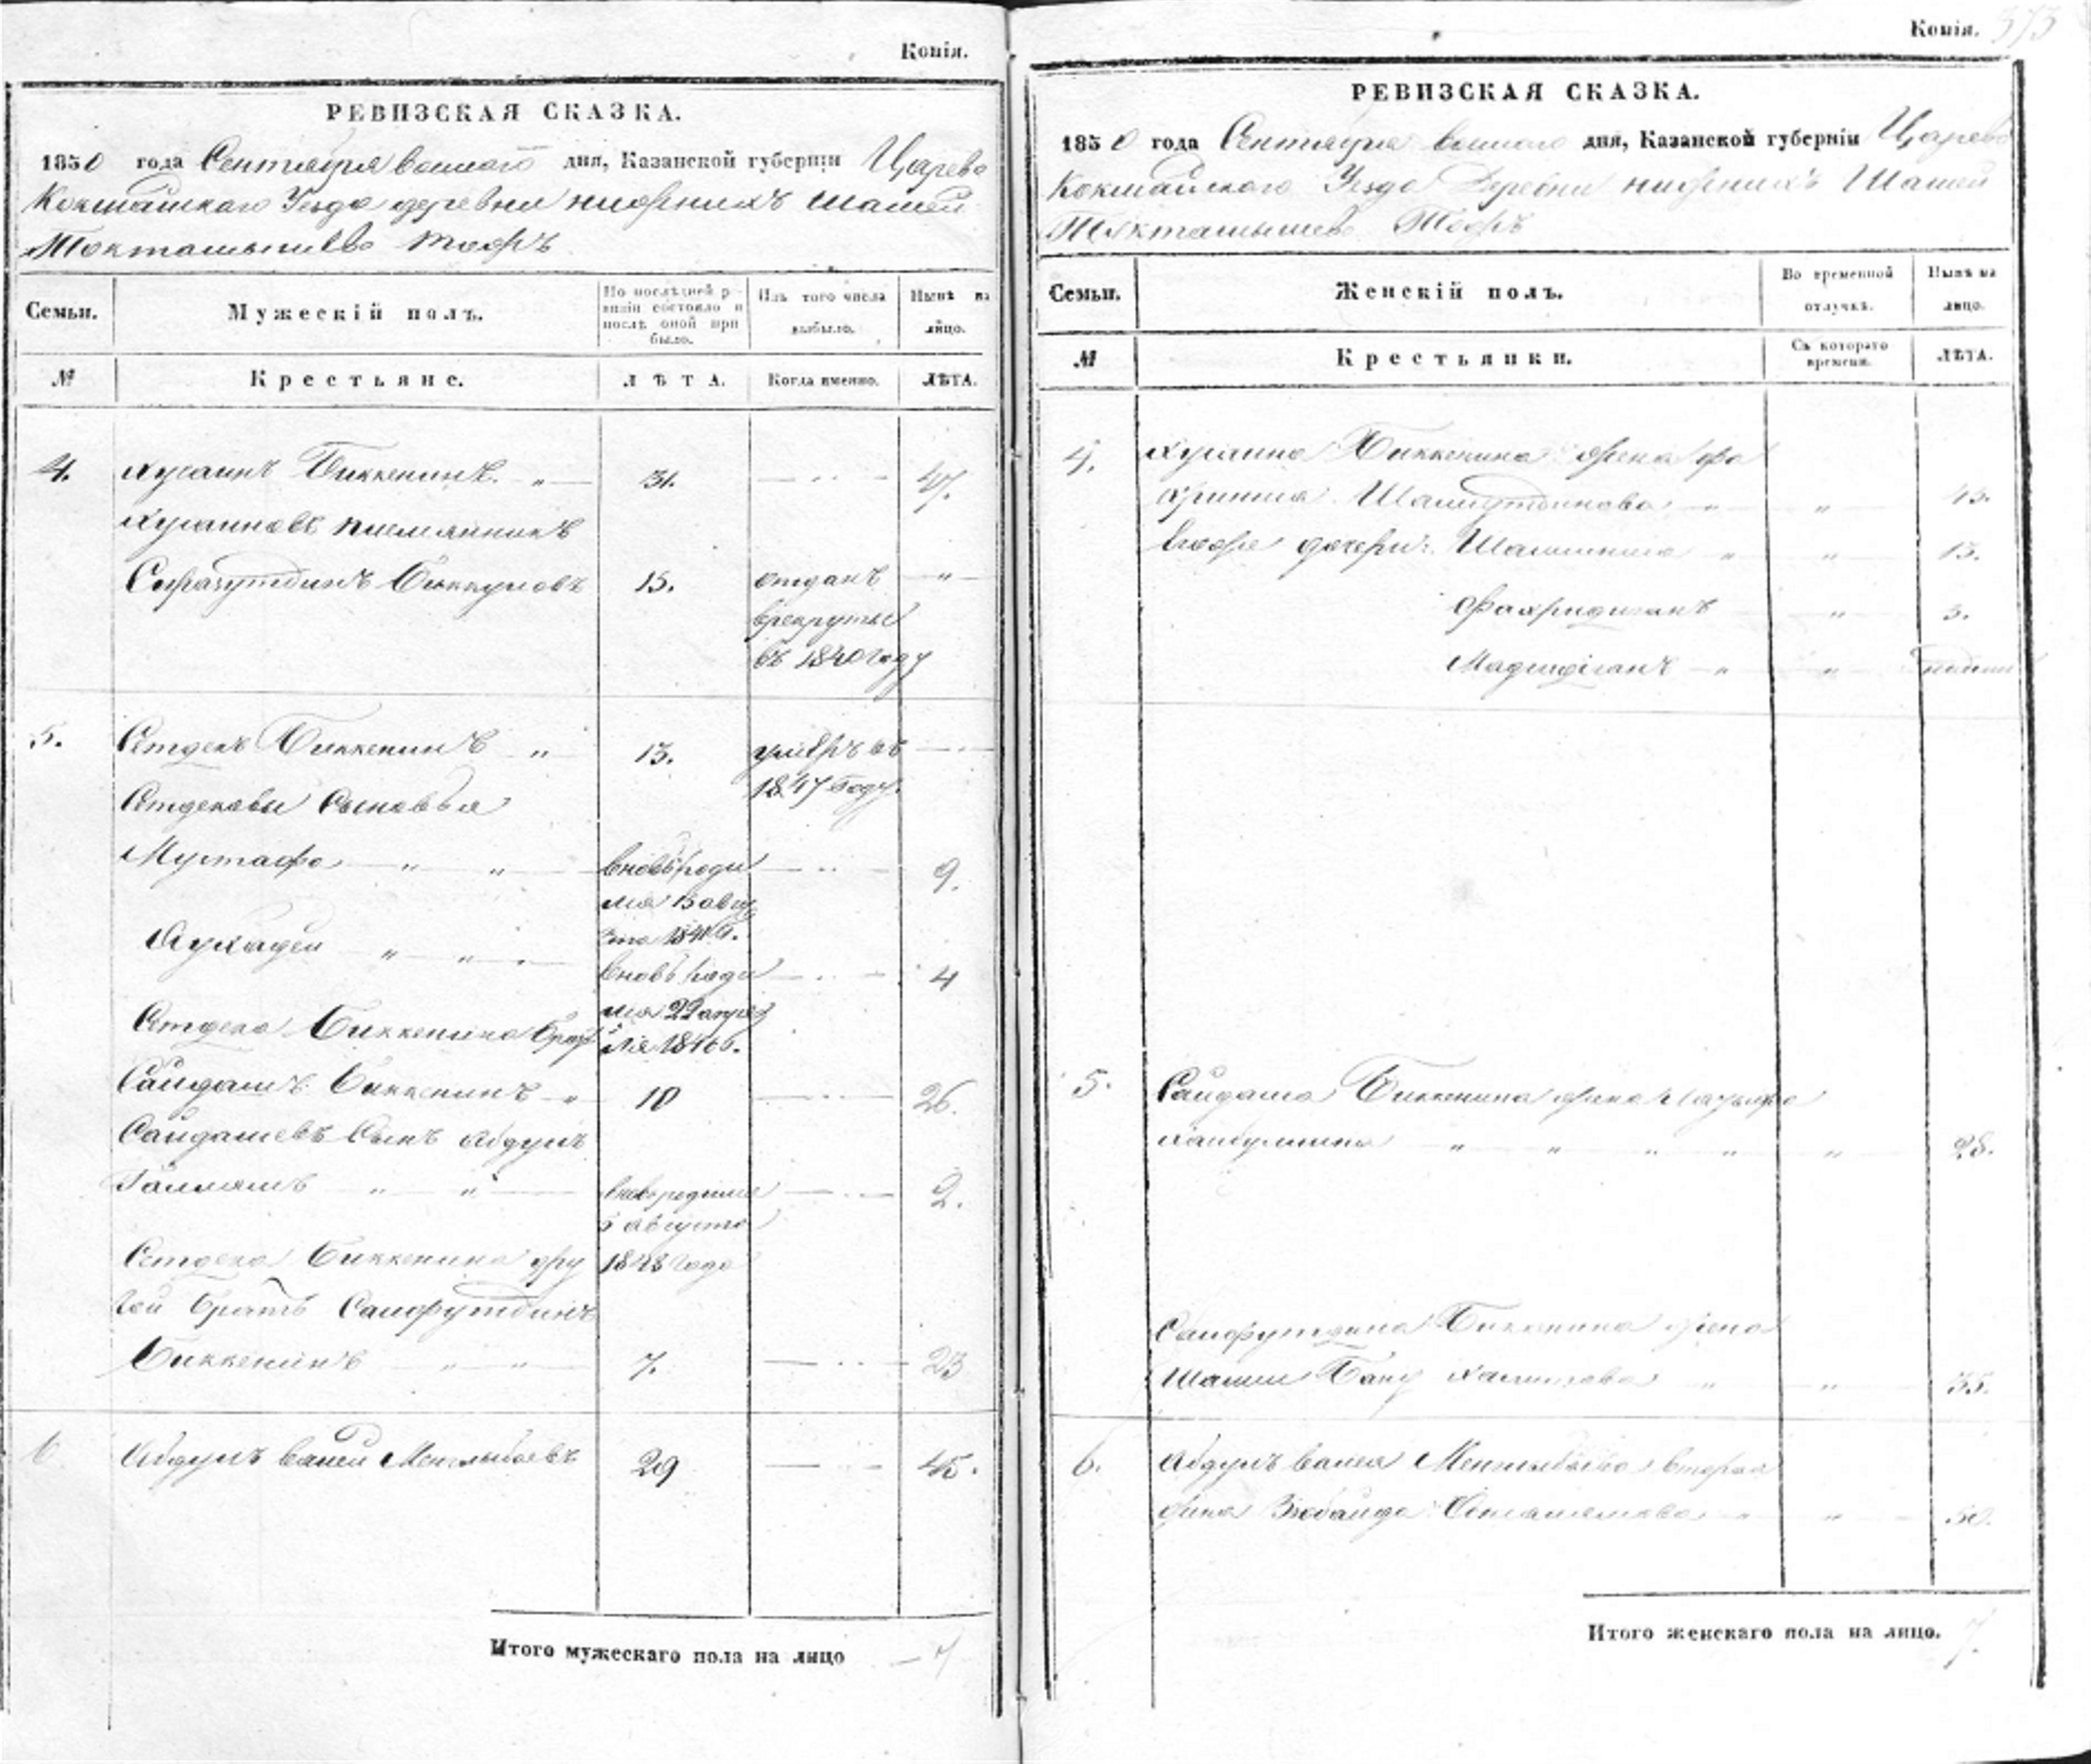 Копія.
РЕВИЗСКАЯ СКАЗКА.
1850 года Сентября дня, Казанской губерніи Царево
Кокшайскаго Уезда деревни нижнихъ Шашей
Токташышево тожъ
Семьи.
Мужескій полъ.
По послѣдней ревизіи состояло и послѣ оной прибыло.
Изъ того числа выбыло.
Нынѣ на лицо.
№
Крестьяне.
ЛѢТА.
Когда именно.
ЛѢТА.
4. Хусаинъ Биккенинъ „ 31. 47.
Хусаиновъ племянникъ
Сиразутдинъ Биккуловъ 15. отданъ „
врекруты
въ 1840 году
5. Сетдекъ Биккенинъ „ 13. умеръ въ
1847 году.
Сетдековы Сыновья
Мустафа „ „ вновь роди 9.
лся 15 авгу
ста 1841 г.
„ „ вновь роди 4
лся 22 апре
ля 1846 г.
Биккенина брат
Сайдашъ Биккенинъ „ 10 26.
Сайдашевъ Сынъ Абдулъ
„ „ вновь родился 2.
5 августа
1848 года
Биккенина дру
гой братъ Сайфутдинъ
Биккенинъ „ „ 7. 23
6 Абдулъ Валей Менглыбаевъ 29 45.
Итого мужескаго пола на лицо 7
Копія. 373
РЕВИЗСКАЯ СКАЗКА.
1850 года Сентября дня, Казанской губерніи Царево
Кокшайскаго Уезда Деревни нижнихъ Шашей
Токташышево Тожъ
Семьи.
Женскій полъ.
Во временной отлучкѣ.
Нынѣ на лицо.
№
Крестьянки.
Съ котораго времени.
ЛѢТА.
4. Хусаина Биккенина жена Фа
„ „ 43.
дочери: „ „ 13.
„ 3.
„ „
5. Сайдаша Биккенина жена
„ „ „ „ „ 28.
Сайфутдина Биккенина жена
Шамси Бану „ „ 35.
6. Абдулъ Валея Менглыбаева вторая
жена Зюбайда „ „ 50.
Итого женскаго пола на лицо. 7.